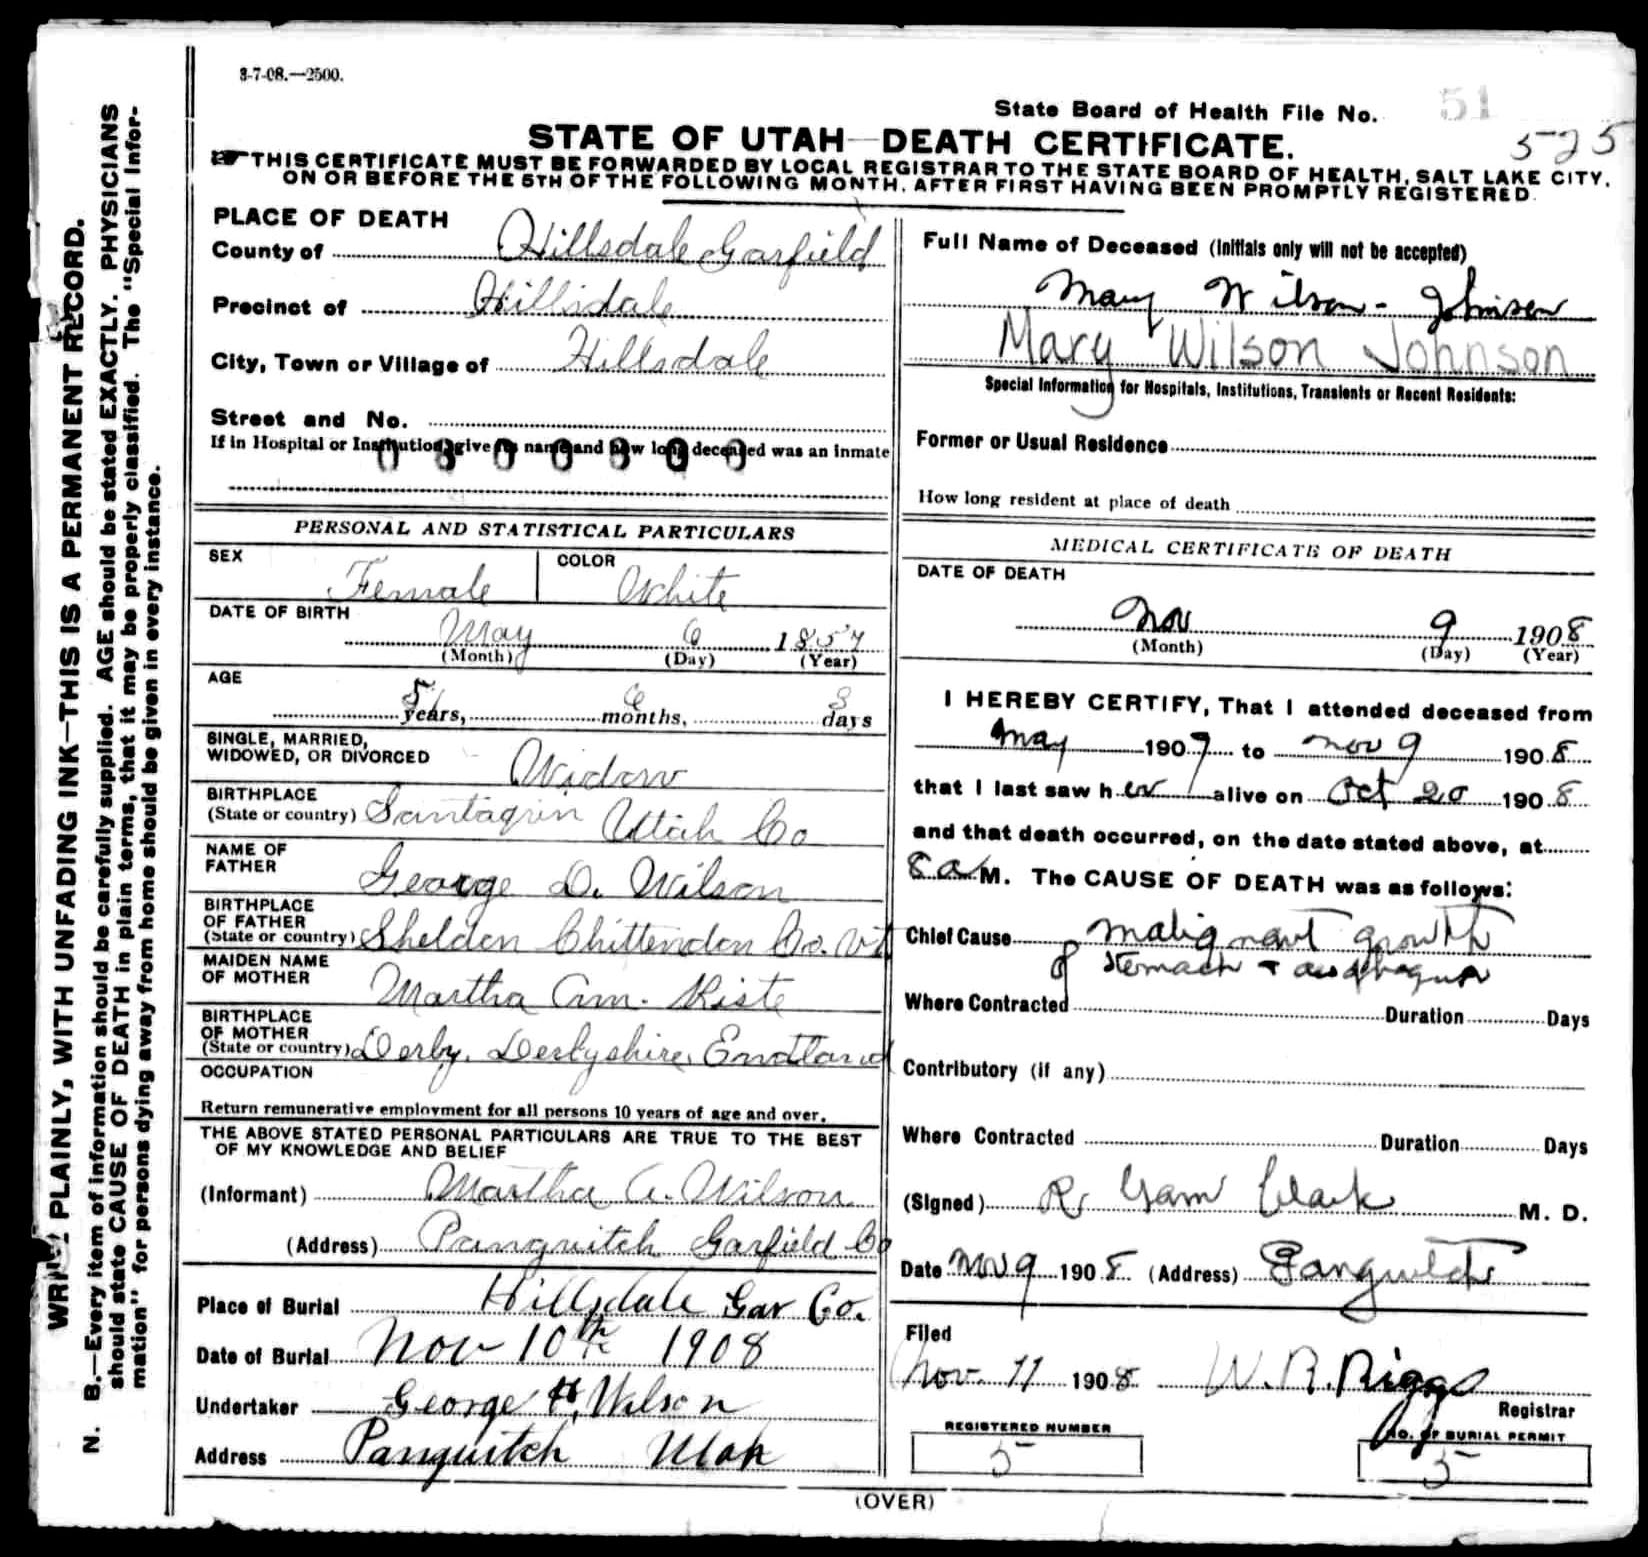 3-7-08.—2500.
State Board of Health File No. 51
525
STATE OF UTAH—DEATH CERTIFICATE.
THIS CERTIFICATE MUST BE FORWARDED BY LOCAL REGISTRAR TO THE STATE BOARD OF HEALTH, SALT LAKE CITY,
ON OR BEFORE THE 5TH OF THE FOLLOWING MONTH, AFTER FIRST HAVING BEEN PROMPTLY REGISTERED.
WRITE PLAINLY, WITH UNFADING INK—THIS IS A PERMANENT RECORD.
N. B.—Every item of information should be carefully supplied. AGE should be stated EXACTLY. PHYSICIANS
should state CAUSE OF DEATH in plain terms, that it may be properly classified. The "Special Infor-
mation" for persons dying away from home should be given in every instance.
PLACE OF DEATH
County of Hillsdale Garfield
Precinct of Hillsdale
City, Town or Village of Hillsdale
Street and No.
If in Hospital or Institution, give its name and how long deceased was an inmate
PERSONAL AND STATISTICAL PARTICULARS
SEX Female COLOR White
DATE OF BIRTH
May 6 1857
(Month) (Day) (Year)
AGE
51 years, 6 months, 3 days
SINGLE, MARRIED,
WIDOWED, OR DIVORCED Widow
BIRTHPLACE
(State or country) Santaquin Utah Co
NAME OF
FATHER George D. Wilson
BIRTHPLACE
OF FATHER
(State or country) Shelden Chittenden Co. Vt
MAIDEN NAME
OF MOTHER Martha Ann Riste
BIRTHPLACE
OF MOTHER
(State or country) Derby, Derbyshire, England
OCCUPATION
Return remunerative employment for all persons 10 years of age and over.
THE ABOVE STATED PERSONAL PARTICULARS ARE TRUE TO THE BEST
OF MY KNOWLEDGE AND BELIEF
(Informant) Martha A. Wilson
(Address) Panguitch Garfield Co
Place of Burial Hillsdale Gar Co.
Date of Burial Nov 10th 1908
Undertaker George H. Wilson
Address Panguitch Utah
Full Name of Deceased (Initials only will not be accepted)
Mary Wilson - Johnson
Mary Wilson Johnson
Special Information for Hospitals, Institutions, Transients or Recent Residents:
Former or Usual Residence
How long resident at place of death
MEDICAL CERTIFICATE OF DEATH
DATE OF DEATH
Nov 9 1908
(Month) (Day) (Year)
I HEREBY CERTIFY, That I attended deceased from
May 1907 to Nov 9 1908
that I last saw her alive on Oct 20 1908
and that death occurred, on the date stated above, at
8 a M. The CAUSE OF DEATH was as follows:
Chief Cause malignant growth
of stomach +
Where Contracted Duration Days
Contributory (if any)
Where Contracted Duration Days
(Signed) R Garn Clark M. D.
Date Nov 9 1908 (Address) Panguitch
Filed
Nov. 11 1908 W. R. Riggs
Registrar
REGISTERED NUMBER
5
NO. OF BURIAL PERMIT
5
(OVER)